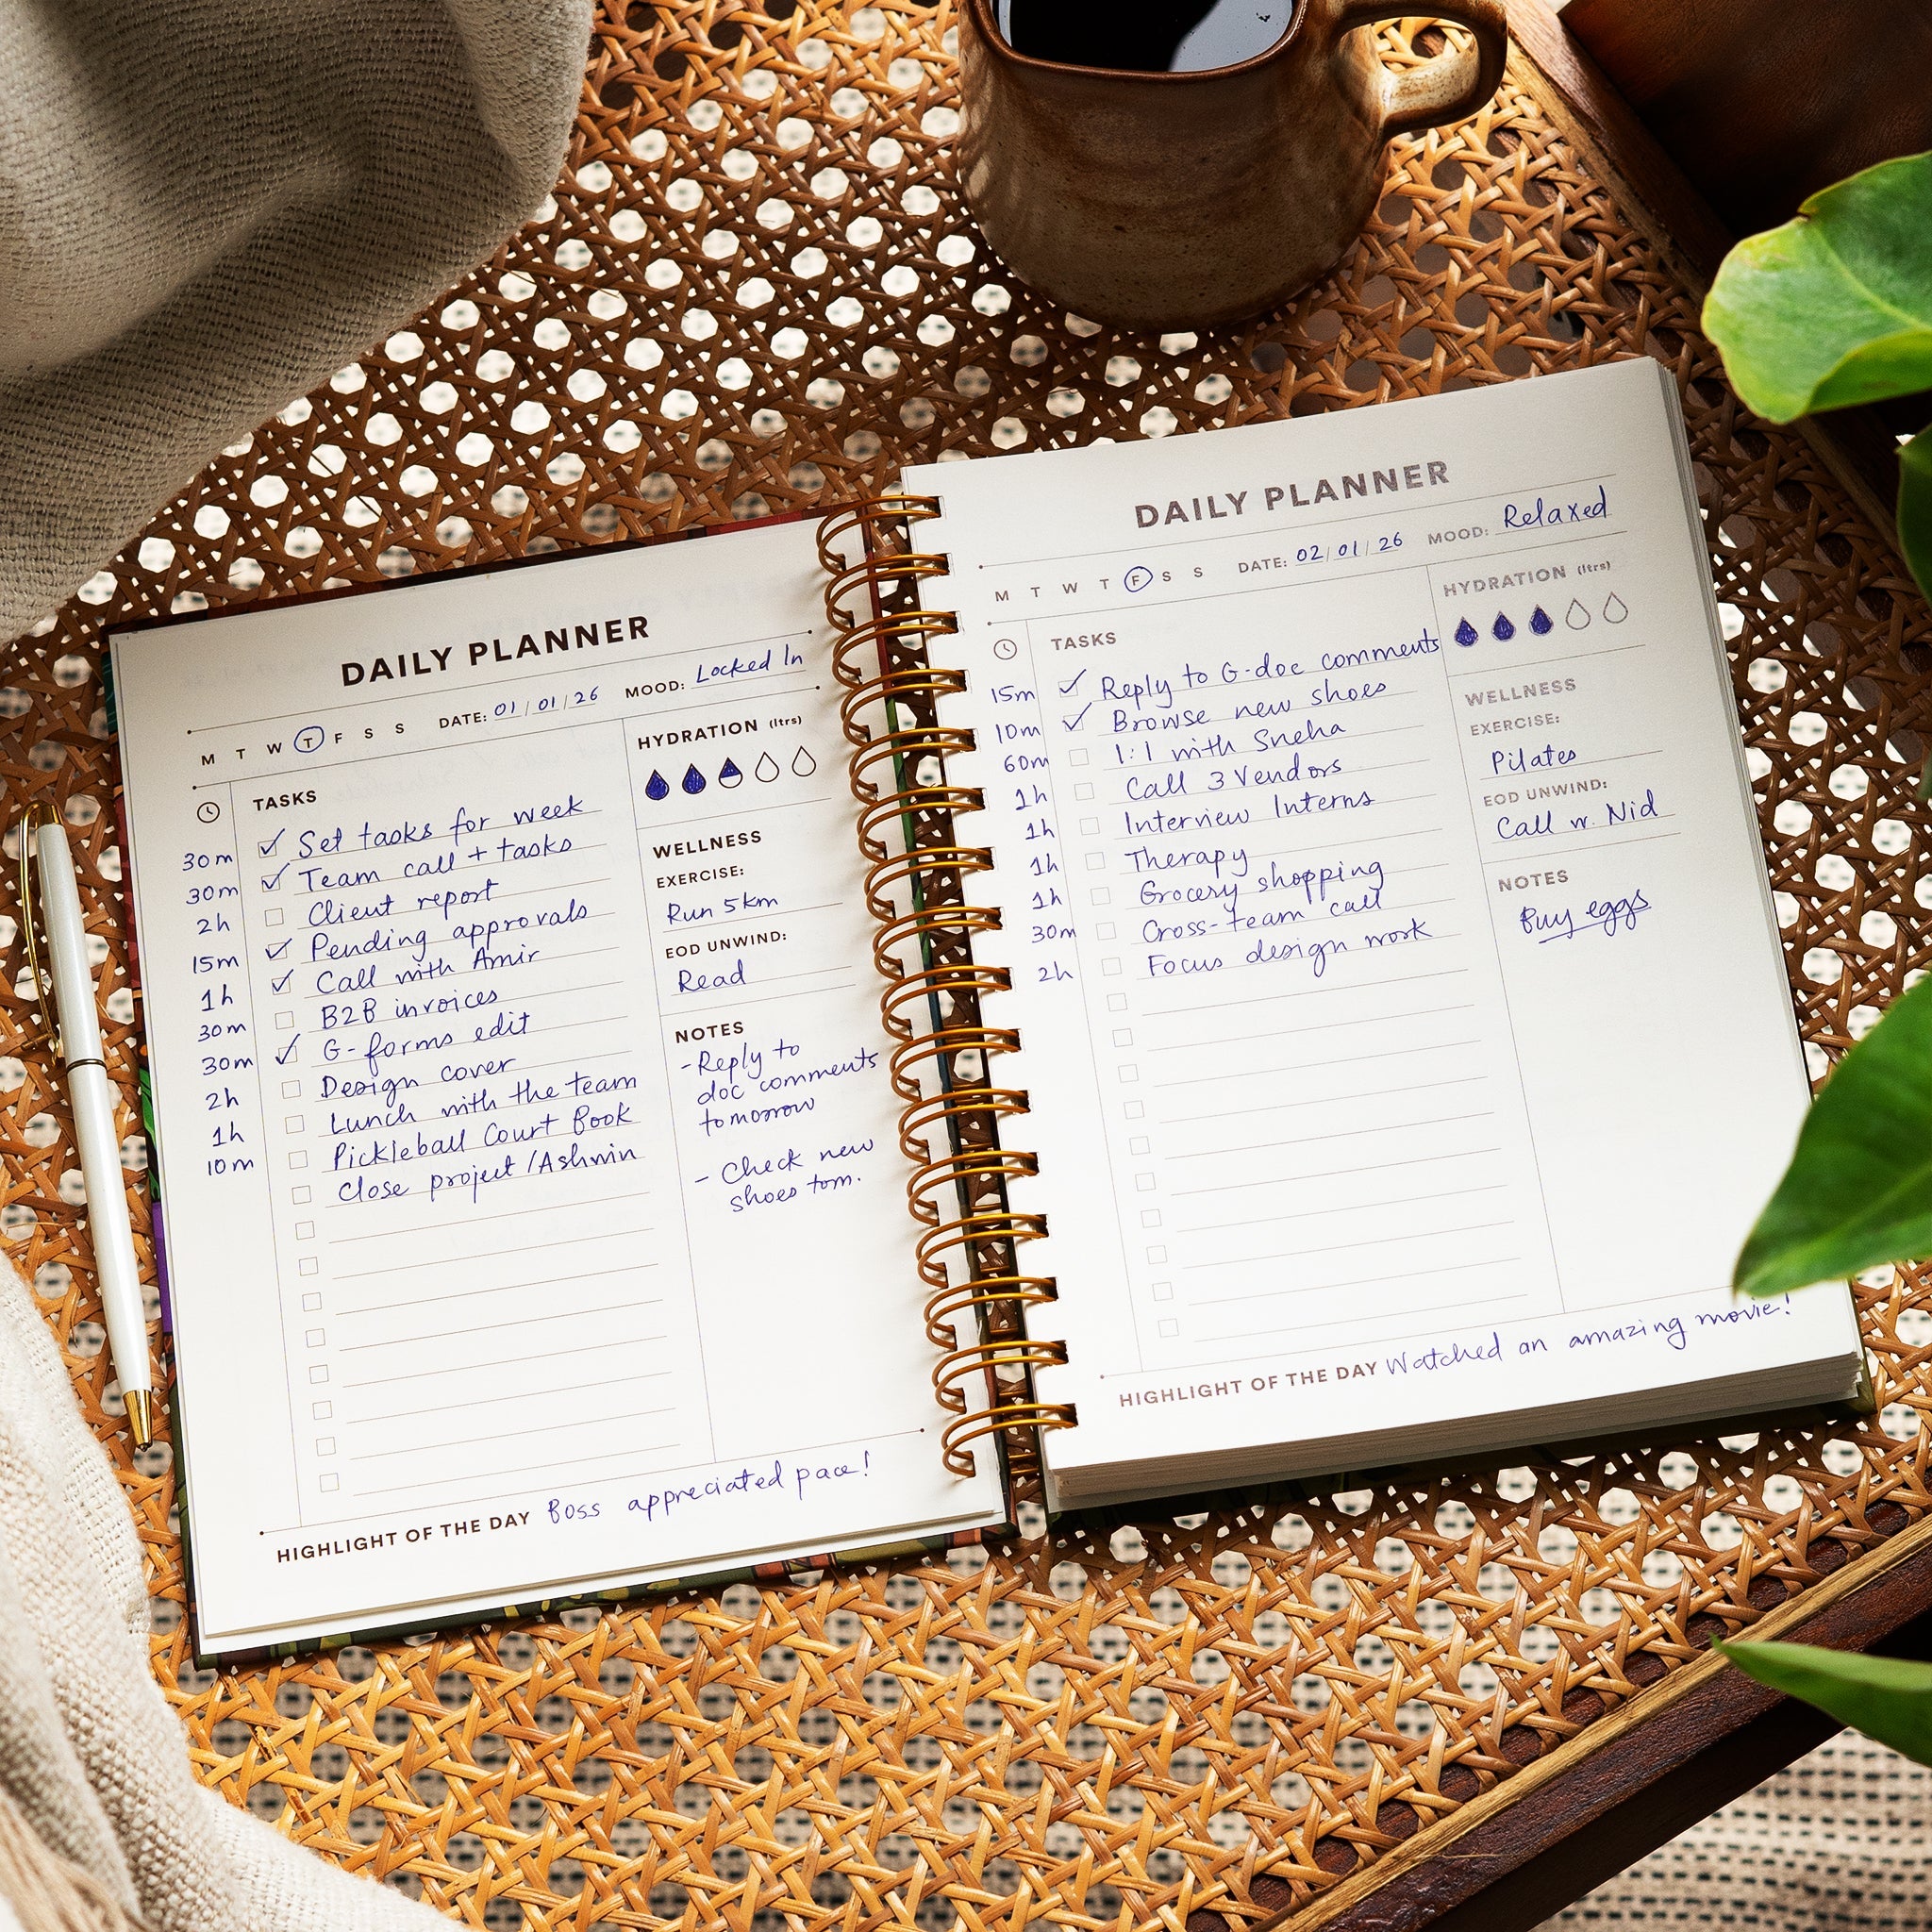 DAILY PLANNER
M T W T F S S DATE: 01/01/26 MOOD: Locked In
TASKS
30m Set tasks for week
30m Team call + tasks
2h Client report
15m Pending approvals
1h Call with Amir
30m B2B invoices
30m G-forms edit
2h Design cover
1h Lunch with the team
10m Pickleball Court Book
Close project/Ashwin
HYDRATION (ltrs)
WELLNESS
EXERCISE:
Run 5km
EOD UNWIND:
Read
NOTES
- Reply to
doc comments
tomorrow
- Check new
shoes tom.
HIGHLIGHT OF THE DAY Boss appreciated pace!
DAILY PLANNER
M T W T F S S DATE: 02/01/26 MOOD: Relaxed
TASKS
15m Reply to G-doc comments
10m Browse new shoes
60m 1:1 with Sneha
1h Call 3 Vendors
1h Interview Interns
1h Therapy
1h Grocery shopping
30m Cross-team call
2h Focus design work
HYDRATION (ltrs)
WELLNESS
EXERCISE:
Pilates
EOD UNWIND:
Call w. Nid
NOTES
Buy eggs
HIGHLIGHT OF THE DAY Watched an amazing movie!